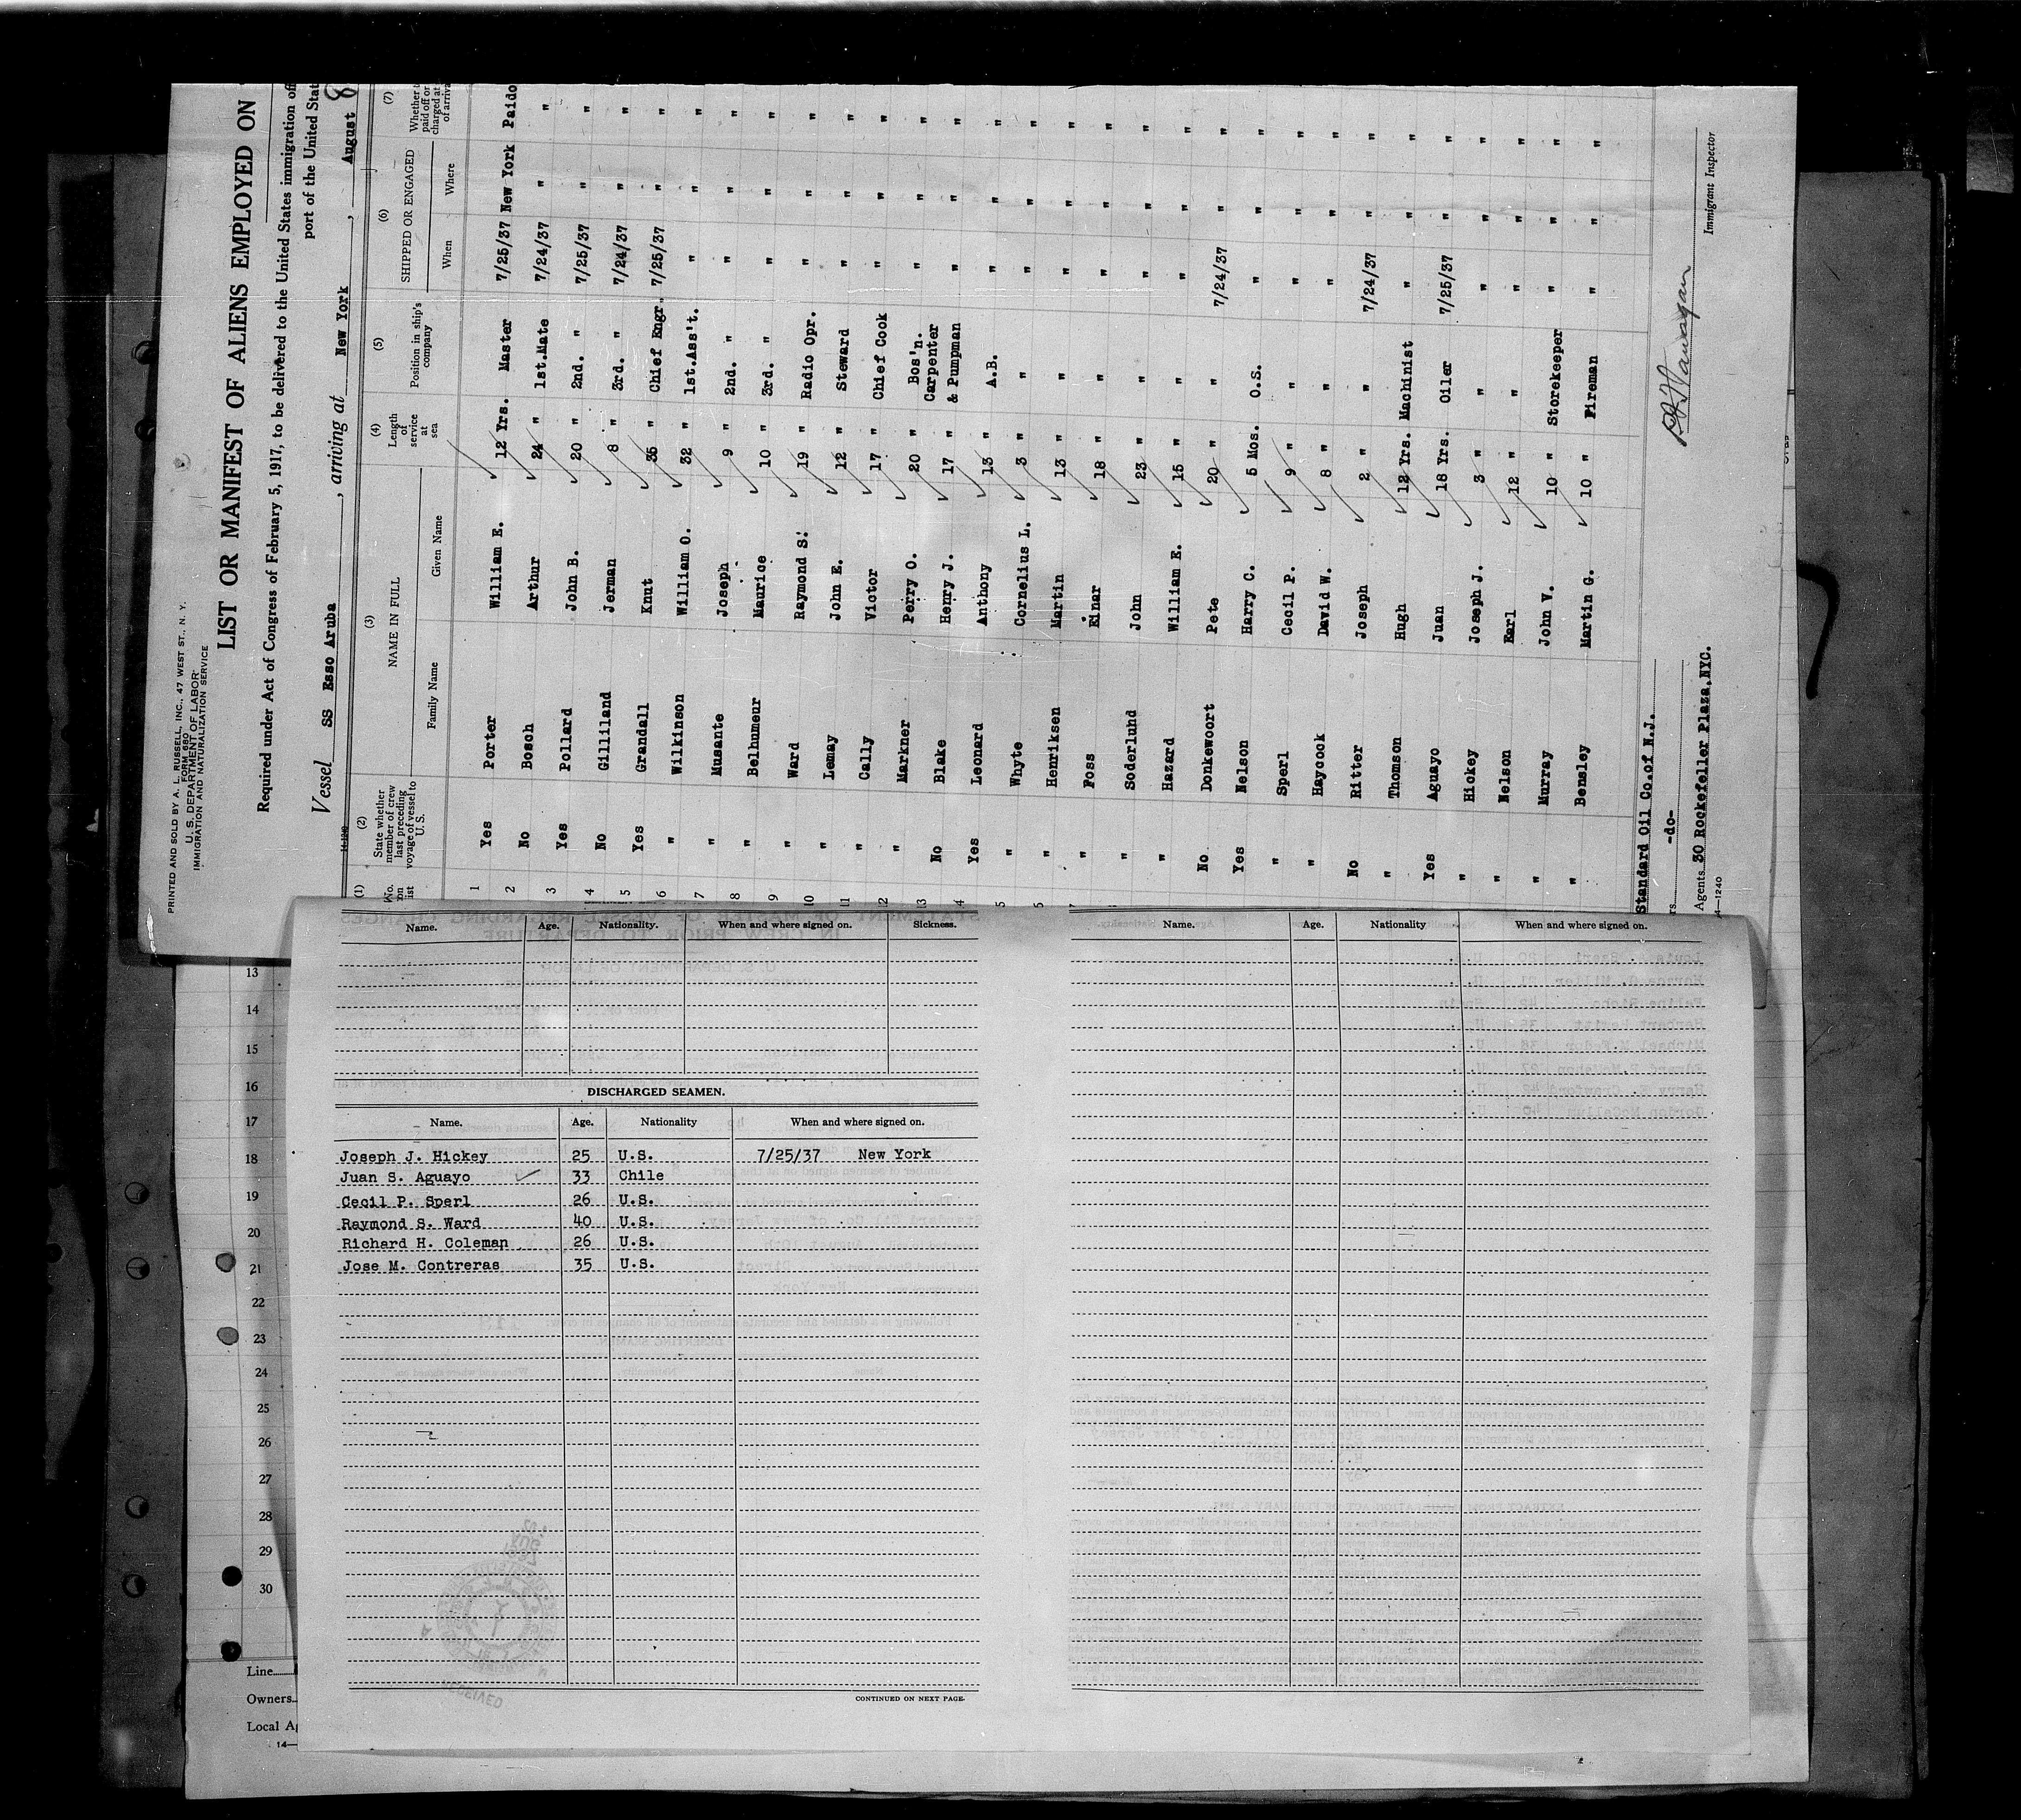 PRINTED AND SOLD BY A. L. RUSSELL, INC., 47 WEST ST., N. Y.
FORM 680
U. S. DEPARTMENT OF LABOR
IMMIGRATION AND NATURALIZATION SERVICE
LIST OR MANIFEST OF ALIENS EMPLOYED ON
Required under Act of Congress of February 5, 1917, to be delivered to the United States immigration
port of the United
Vessel SS Esso Aruba , arriving at New York , August 8
(1) (2) (3) (4) (5) (6) (7)
No. on list State whether member of crew last preceding voyage of vessel to U. S. NAME IN FULL Length of service at sea Position in ship's company SHIPPED OR ENGAGED Whether
paid off or
charged at
of arriva
Family Name Given Name When Where
1 Yes Porter William E. 12 Yrs. Master 7/25/37 New York Paido
2 No Bosch Arthur 24 " 1st.Mate 7/24/37 " "
3 Yes Pollard John B. 20 " 2nd. " 7/25/37 " "
4 No Gilliland Jerman 8 " 3rd. " 7/24/37 " "
5 Yes Grandall Knut 35 " Chief Engr. 7/25/37 " "
6 " Wilkinson William O. 32 " 1st.Ass't. " " "
7 " Musante Joseph 9 " 2nd. " " " "
8 " Belhumeur Maurice 10 " 3rd. " " " "
9 " Ward Raymond S. 19 " Radio Opr. " " "
10 " Lemay John E. 12 " Steward " " "
11 " Cally Victor 17 " Chief Cook " " "
12 " Markner Perry O. 20 " Bos'n. " " "
13 No Blake Henry J. 17 " Carpenter & Pumpman " " "
14 Yes Leonard Anthony 13 " A.B. " " "
" Whyte Cornelius L. 3 " " " " "
" Henriksen Martin 13 " " " " "
" Foss Einar 18 " " " " "
" Soderlund John 23 " " " " "
" Hazard William E. 15 " " " " "
No Donkewoort Pete 20 " " 7/24/37 " "
Yes Nelson Harry C. 5 Mos. O.S. " " "
" Sperl Cecil P. 9 " " " " "
" Haycock David W. 8 " " " " "
No Ritter Joseph 2 " " 7/24/37 " "
" Thomson Hugh 12 Yrs. Machinist " " "
Yes Aguayo Juan 18 Yrs. Oiler 7/25/37 " "
" Hickey Joseph J. 3 " " " " "
" Nelson Earl 12 " " " " "
" Murray John V. 10 " Storekeeper " " "
" Bensley Martin G. 10 " Fireman " " "
Standard Oil Co.of N.J.
-do-
Agents 30 Rockefeller Plaza,NYC.
14—1240
Immigrant Inspector
Name. Age. Nationality. When and where signed on. Sickness.
DISCHARGED SEAMEN.
Name. Age. Nationality When and where signed on.
Joseph J. Hickey 25 U.S. 7/25/37 New York
Juan S. Aguayo 33 Chile
Cecil P. Sperl 26 U.S.
Raymond S. Ward 40 U.S.
Richard H. Coleman 26 U.S.
Jose M. Contreras 35 U.S.
CONTINUED ON NEXT PAGE.
Name. Age. Nationality When and where signed on.
13
14
15
16
17
18
19
20
21
22
23
24
25
26
27
28
29
30
Line
Owners
Local
14—